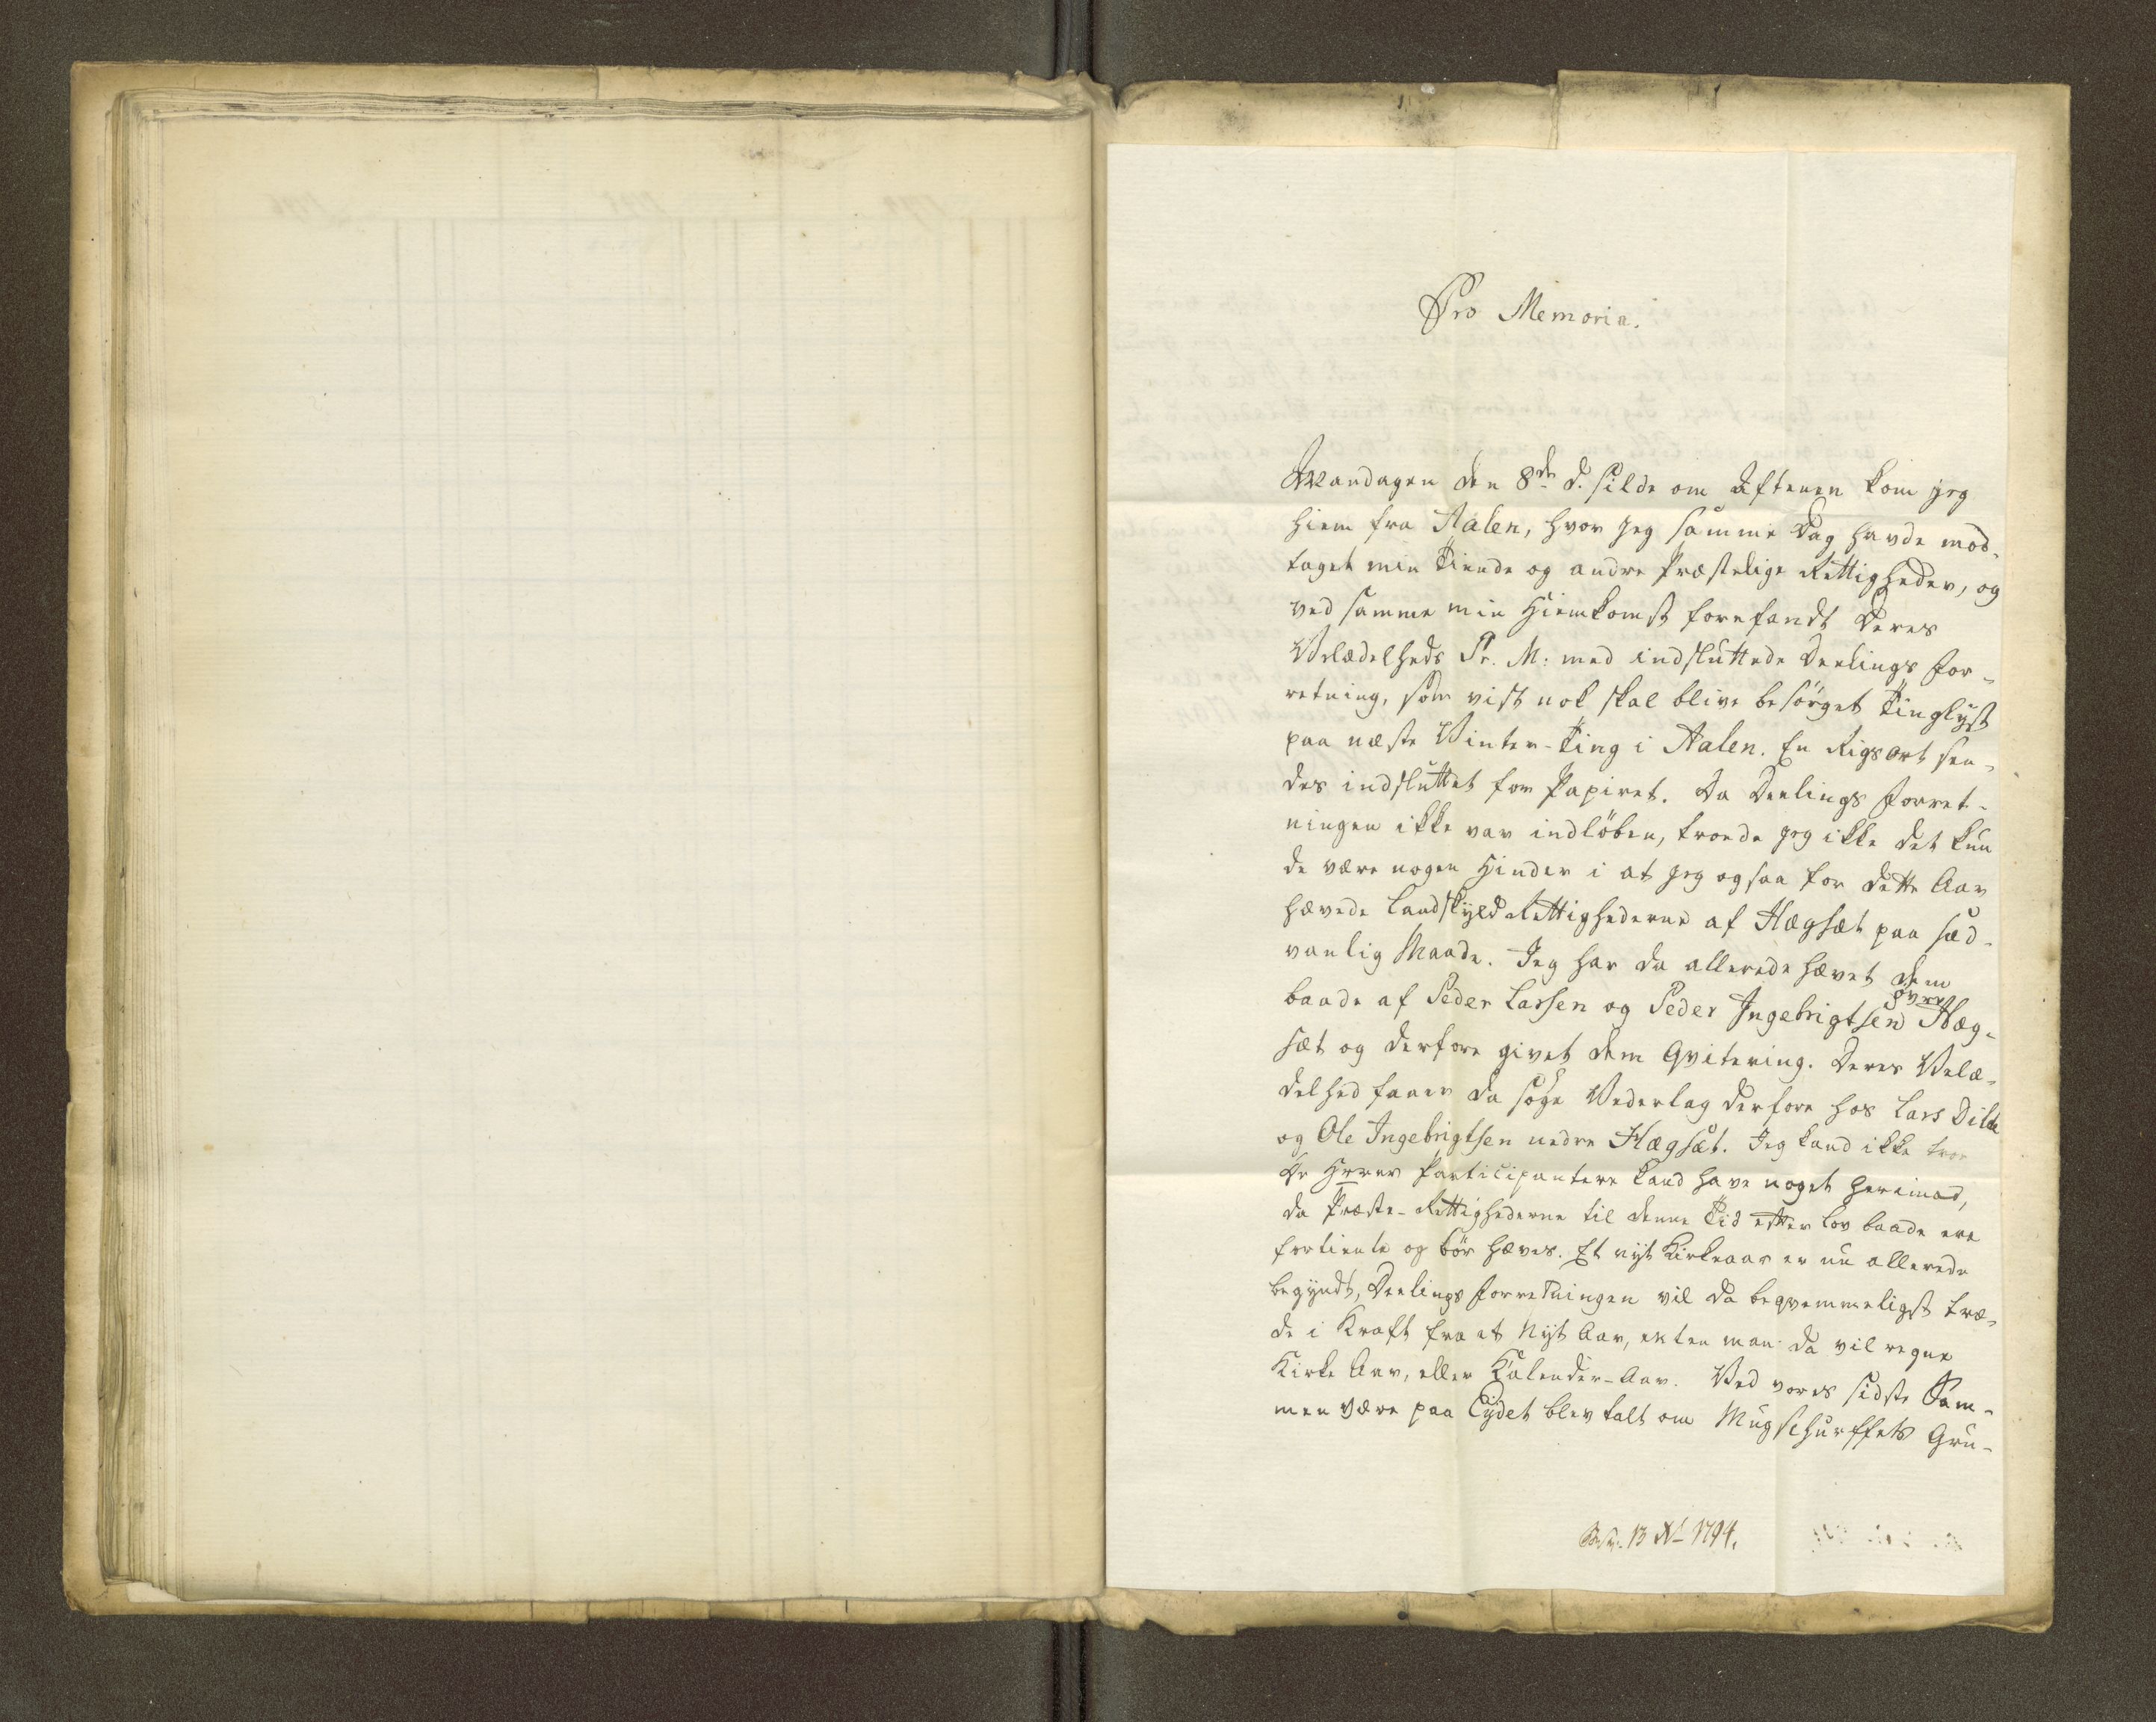 Pro Memoria.
Mandagen den 8de d. silde om Aftenen kom jeg
hiem fra Aalen, hvor jeg samme Dag havde mod-
taget min Tiende og andre Præstelige Rettigheder, og
ved samme min Hiemkomst forefandt Deres
Velædelheds Pr. M: med indsluttede Deelings for-
retning, som vist nok skal blive besörget Tinglyst
paa næste Vinter-Ting i Aalen. En Rigsort sen-
des indsluttet for Papiret. Da Deelings Forret-
ningen ikke var indlöben, troede jeg ikke det kun
de være nogen Hinder i at jeg ogsaa for dette Aar
hævede Landskyld Rettighederne af Hægsæt paa sæd-
vanlig Maade. Jeg har da allerede hævet dem
baade af Peder Larsen og Peder Ingebrigtsen övre Hæg-
sæt og derfore givet dem Qvitering. Deres Velæ-
delhed faaer da söge Vederlag derfore hos Lars Dilde
og Ole Ingebrigtsen nedre Hægsæt. Jeg kand ikke troe
De Herrer Participantere kand have noget herimod,
da Præste-Rettighederne til denne Tid efter Lov baade ere
fortiente og bör hæves. Et nyt Kirkeaar er nu allerede
begyndt, Deelings Forretningen vil da beqvemmeligst træ-
de i Kraft fra et Nyt Aar, enten man da vil regne
Kirke Aar, eller Calender-Aar. Ved vores sidste Sam-
men være paa Eydet blev talt om Mugschurffets Gru-
13 1794.